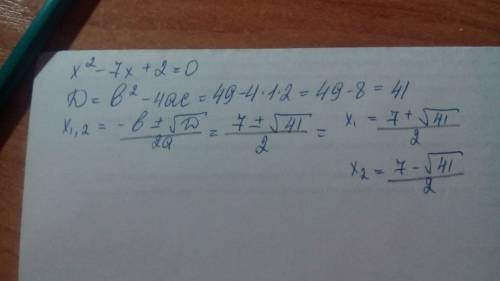 x² - 7x + 2 = 0
D = b² - 4ac = 49 - 4·1·2 = 49 - 8 = 41
x₁,₂ = -b ± √D / 2a = 7 ± √41 / 2 = x₁ = 7 + √41 / 2
x₂ = 7 - √41 / 2